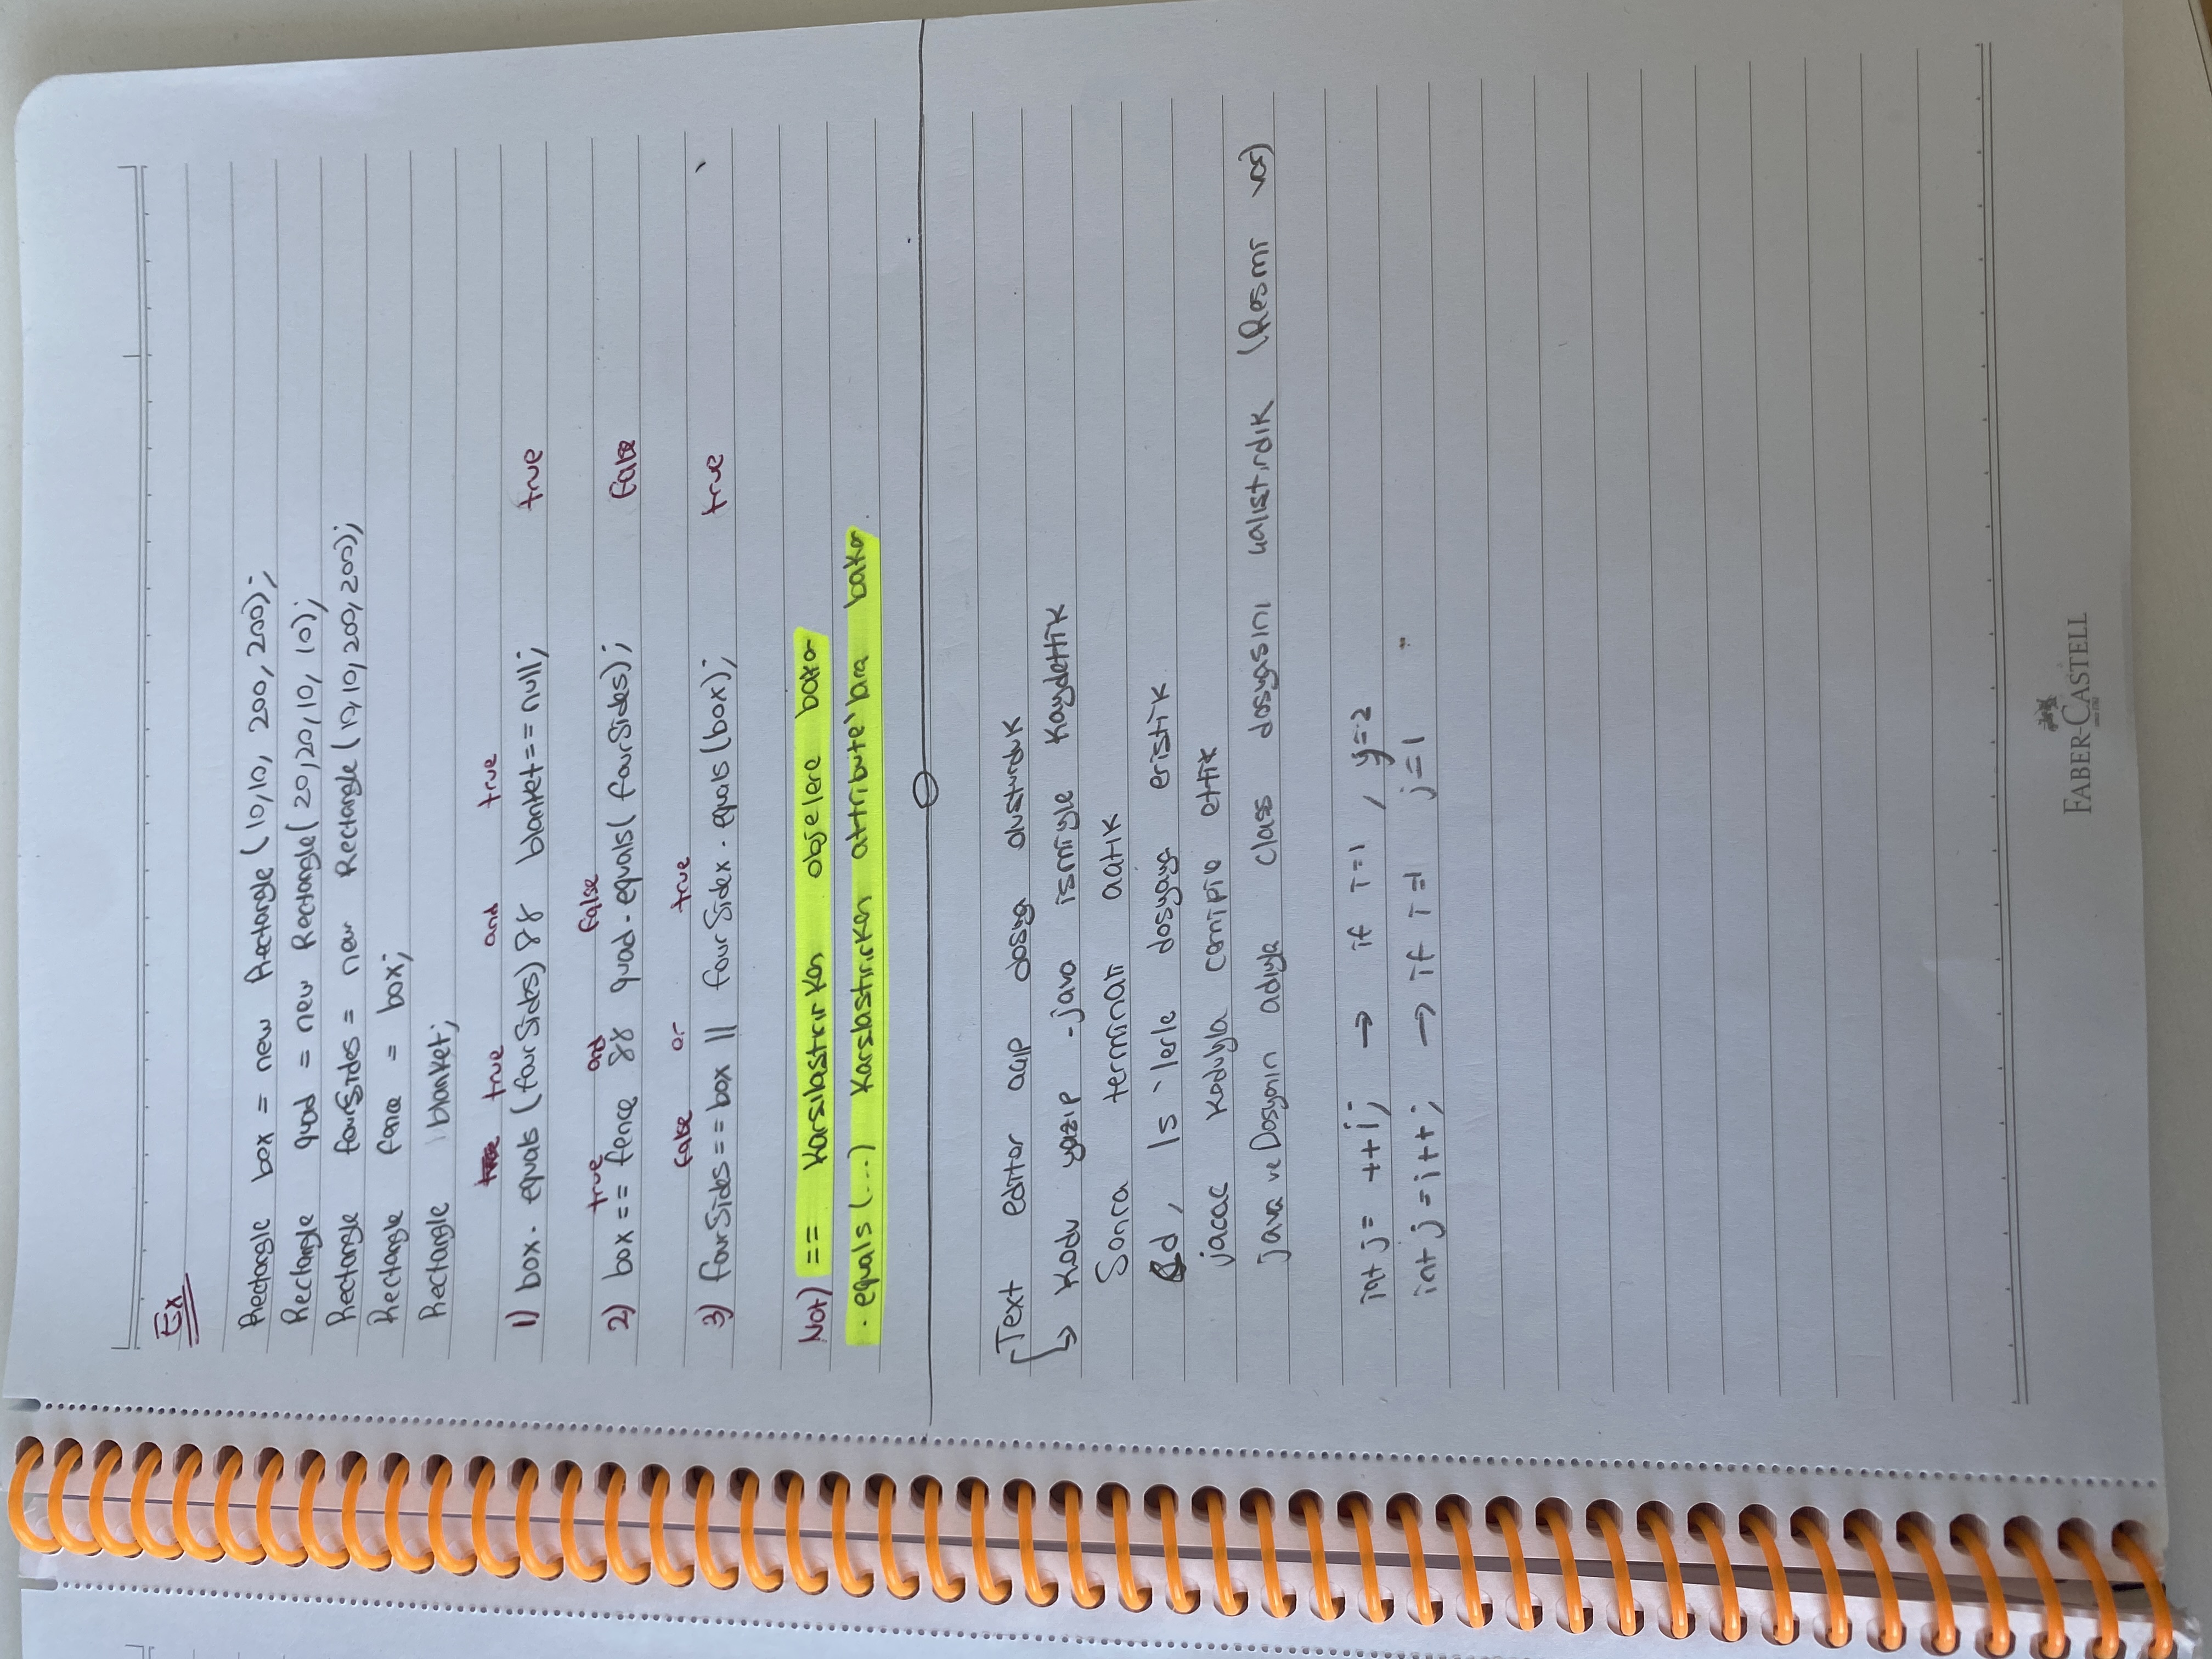 Ex
Rectangle box = new Rectangle (10,10, 200, 200);
Rectangle quad = new Rectangle( 20,20,10, 10);
Rectangle fourSides = new Rectangle (10,10,200,200);
Rectangle fence = box;
Rectangle blanket;
true and true
1) box. equals (fourSides) && blanket == null; true
true and false
2) box == fence && quad.equals( fourSides); false
false or true
3) fourSides == box || fourSidex.equals(box); true
Not) == Karsılastırırken objelere bakar
.equals (...) Karsılastırırken attribute'lara bakar.
Text editor acıp dosya olusturduk
Kodu yazıp .java ismiyle Kaydettik
Sonra terminali actık
Cd, ls 'lerle dosyaya eristik
jacac Koduyla ettik
java ve Dosyanın adıyla class dosyasını calıstırdık (Resmi var)
int j= ++i; → if i=1 , y=2
int j=i++; → if i=1 j=1
FABER-CASTELL
since 1761